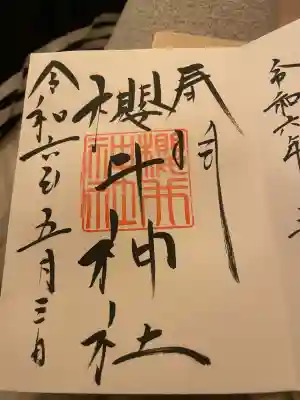 令和六年
奉拝
櫻井神社
令和六年五月三日